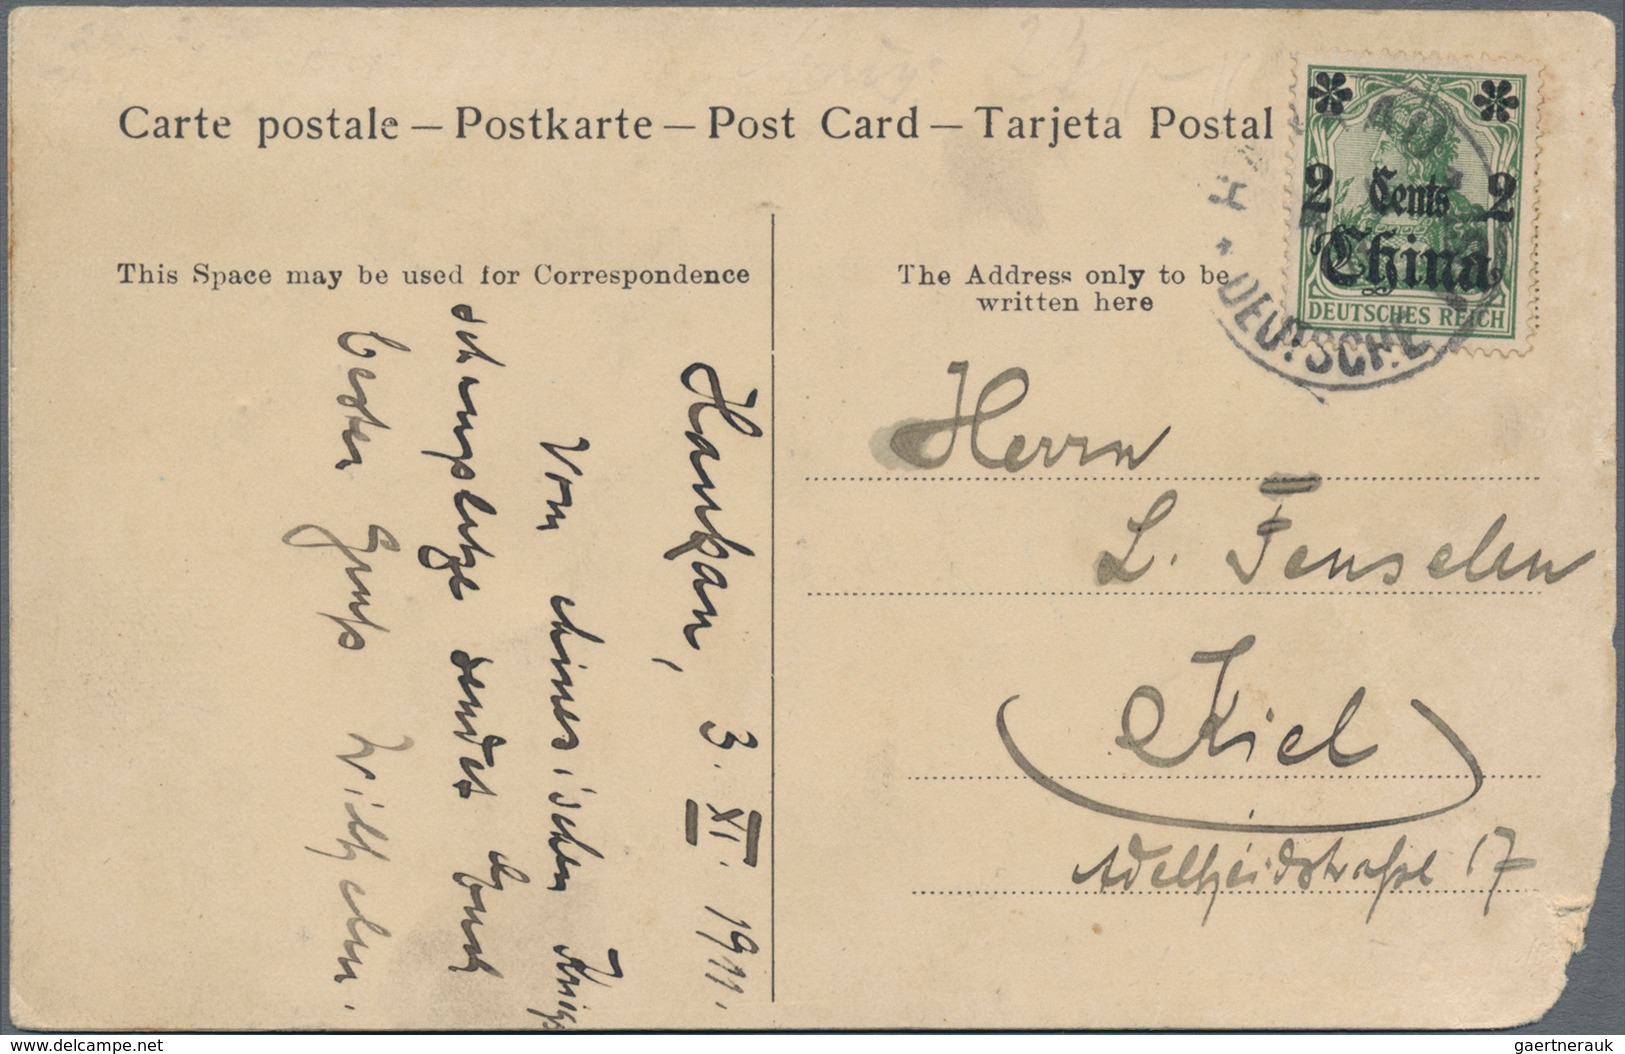 Carte postale — Postkarte — Post Card — Tarjeta Postal
This Space may be used for Correspondence
The Address only to be
written here
2 Cents 2
China
DEUTSCHES REICH
DEUTSCHE
Hankau, 3. XI. 1911.
Vom chinesischen Kriegs
schauplatze sendet Euch
besten Gruß Wilhelm.
Herrn
L.
Kiel
Adelheidstraße 17
delcampe.net
gaertnerauk